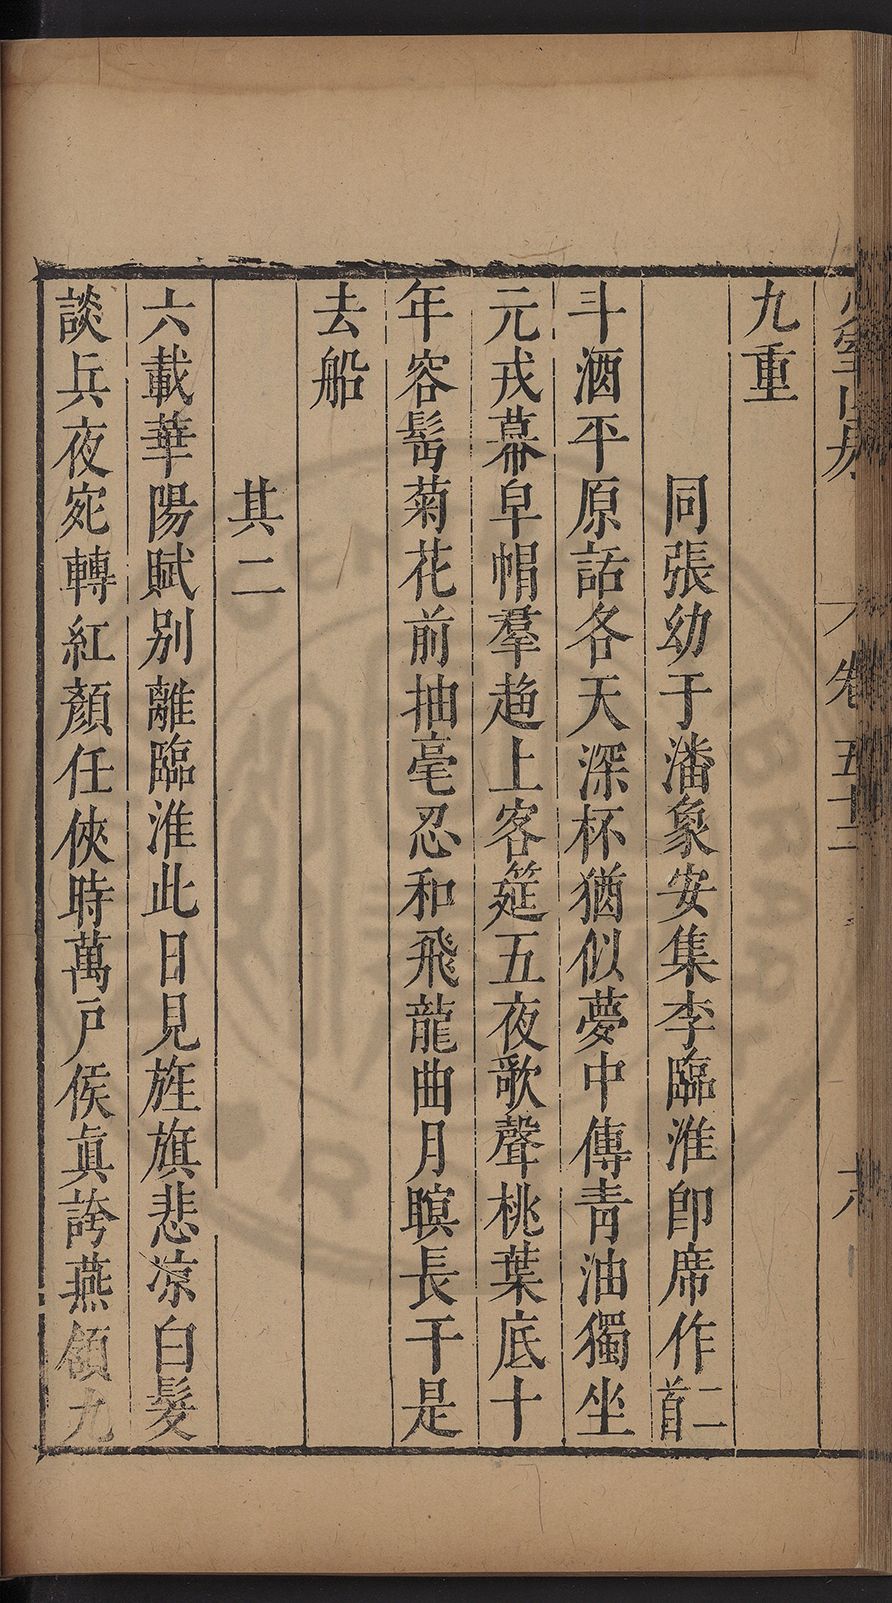 少室山房
卷五十二
六
九重
同張幼于潘象安集李臨淮即席作二首
斗酒平原話各天深杯猶似夢中傳青油獨坐
元戎幕皁帽羣趨上客筵五夜歌聲桃葉底十
年容髩菊花前抽毫忍和飛龍曲月暝長干是
去船
其二
六載華陽賦别離臨淮此日見旌旗悲凉白髮
談兵夜宛轉紅顏任俠時萬戸侯眞誇燕頷九